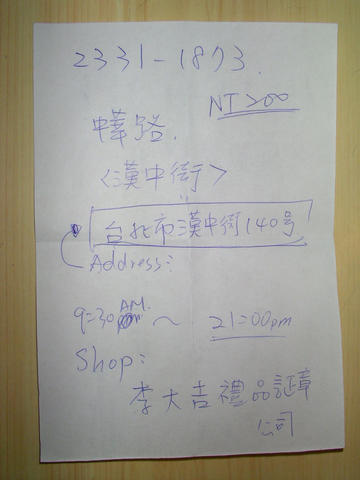 2331-1873.
NT 200
中華路.
<漢中街>
台北市漢中街140号
Address:
9:30 AM ~ 21:00pm
Shop:
李大吉禮品証章
公司